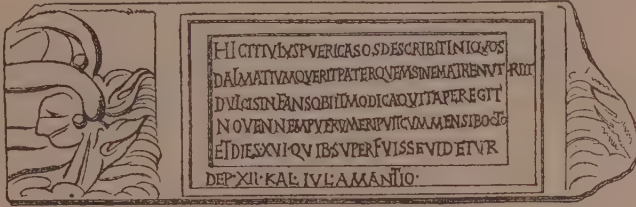 HICTITVLVSPVERICASOSDESCRIBITINIQVOS
DALMATIVMQVERITPATERQVEMSINEMATRENVT·RIIT
DVLCISINFANSOBIITMODICAQVITAPEREGIT
NOVENNEMPVERVMERIPVITCVMMENSIBOCTO
ETDIESXVI·QVIBSVPERFVISSEVIDETVR
DEP·XII·KAL·IVL·AMANTIO·